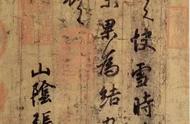 快雪時
果為結
山陰張